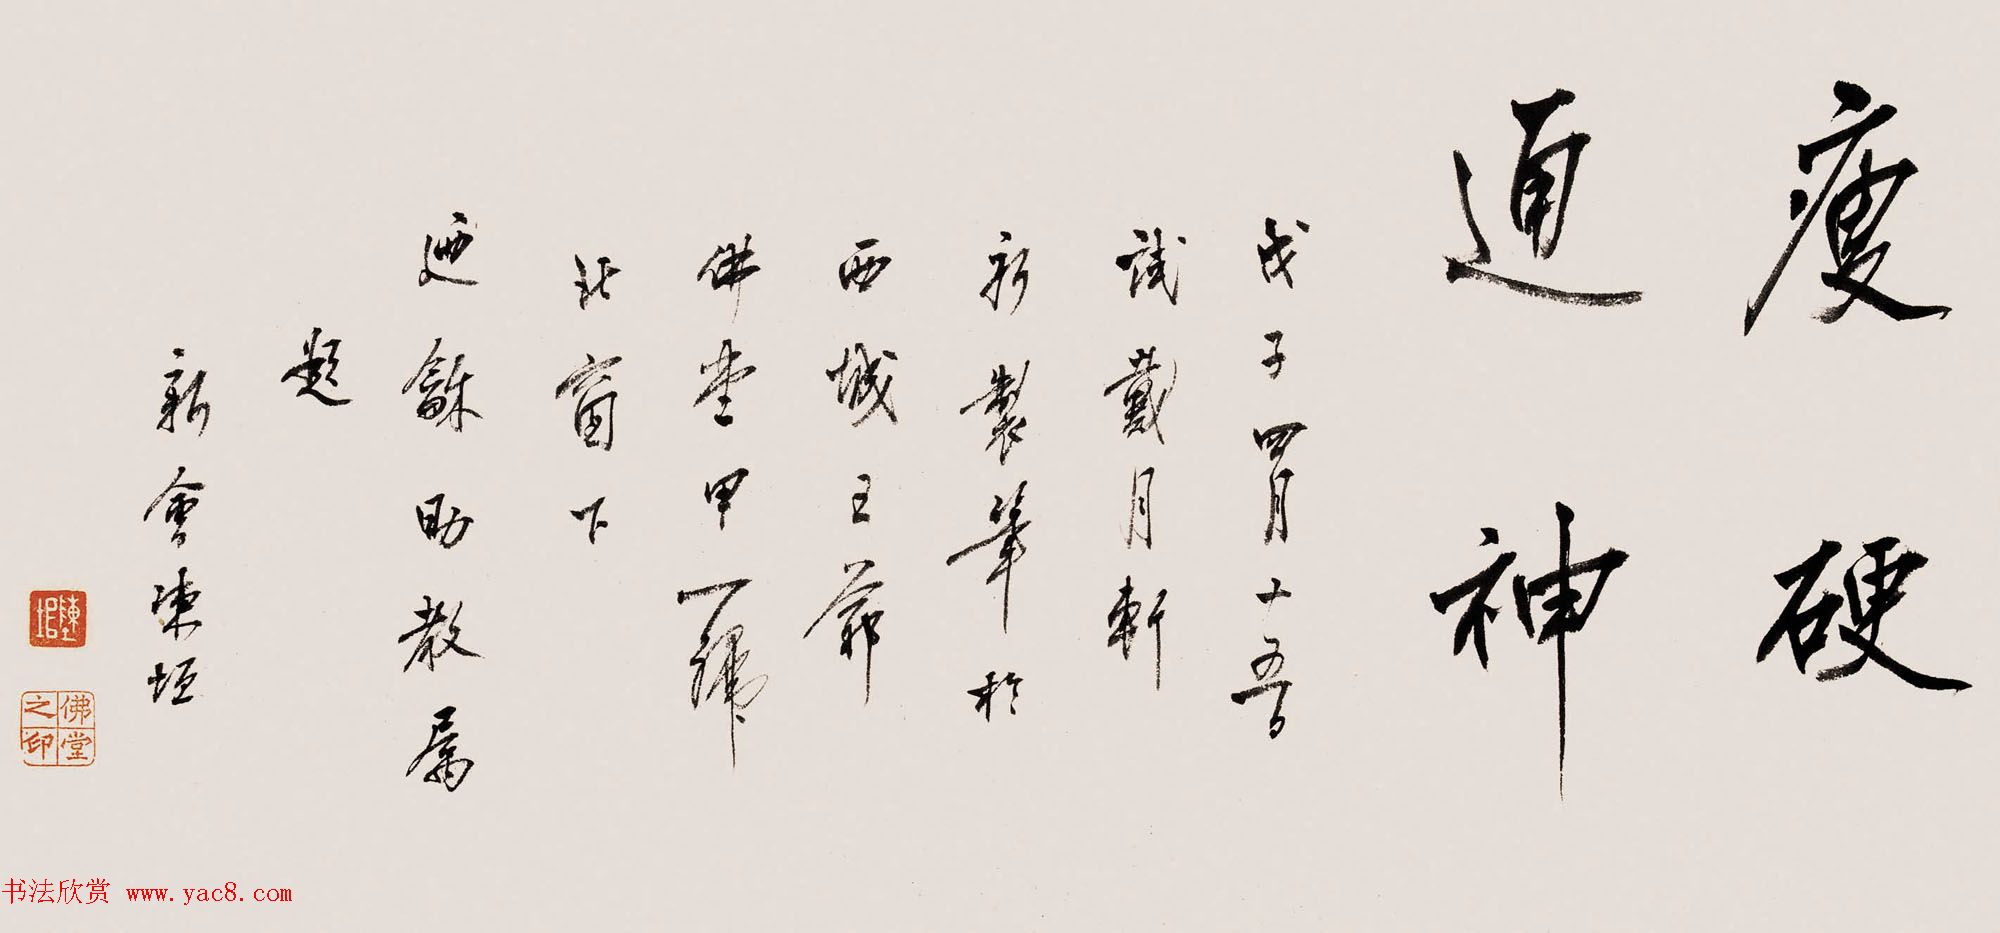 瘦硬
通神
戊子四月十五曹
試戴月軒
新製筆於
西城王爺
佛堂甲一號
北窗下
迺龢助教屬
題
新會陳垣
陳垣
佛堂之印
书法欣赏 www.yac8.com